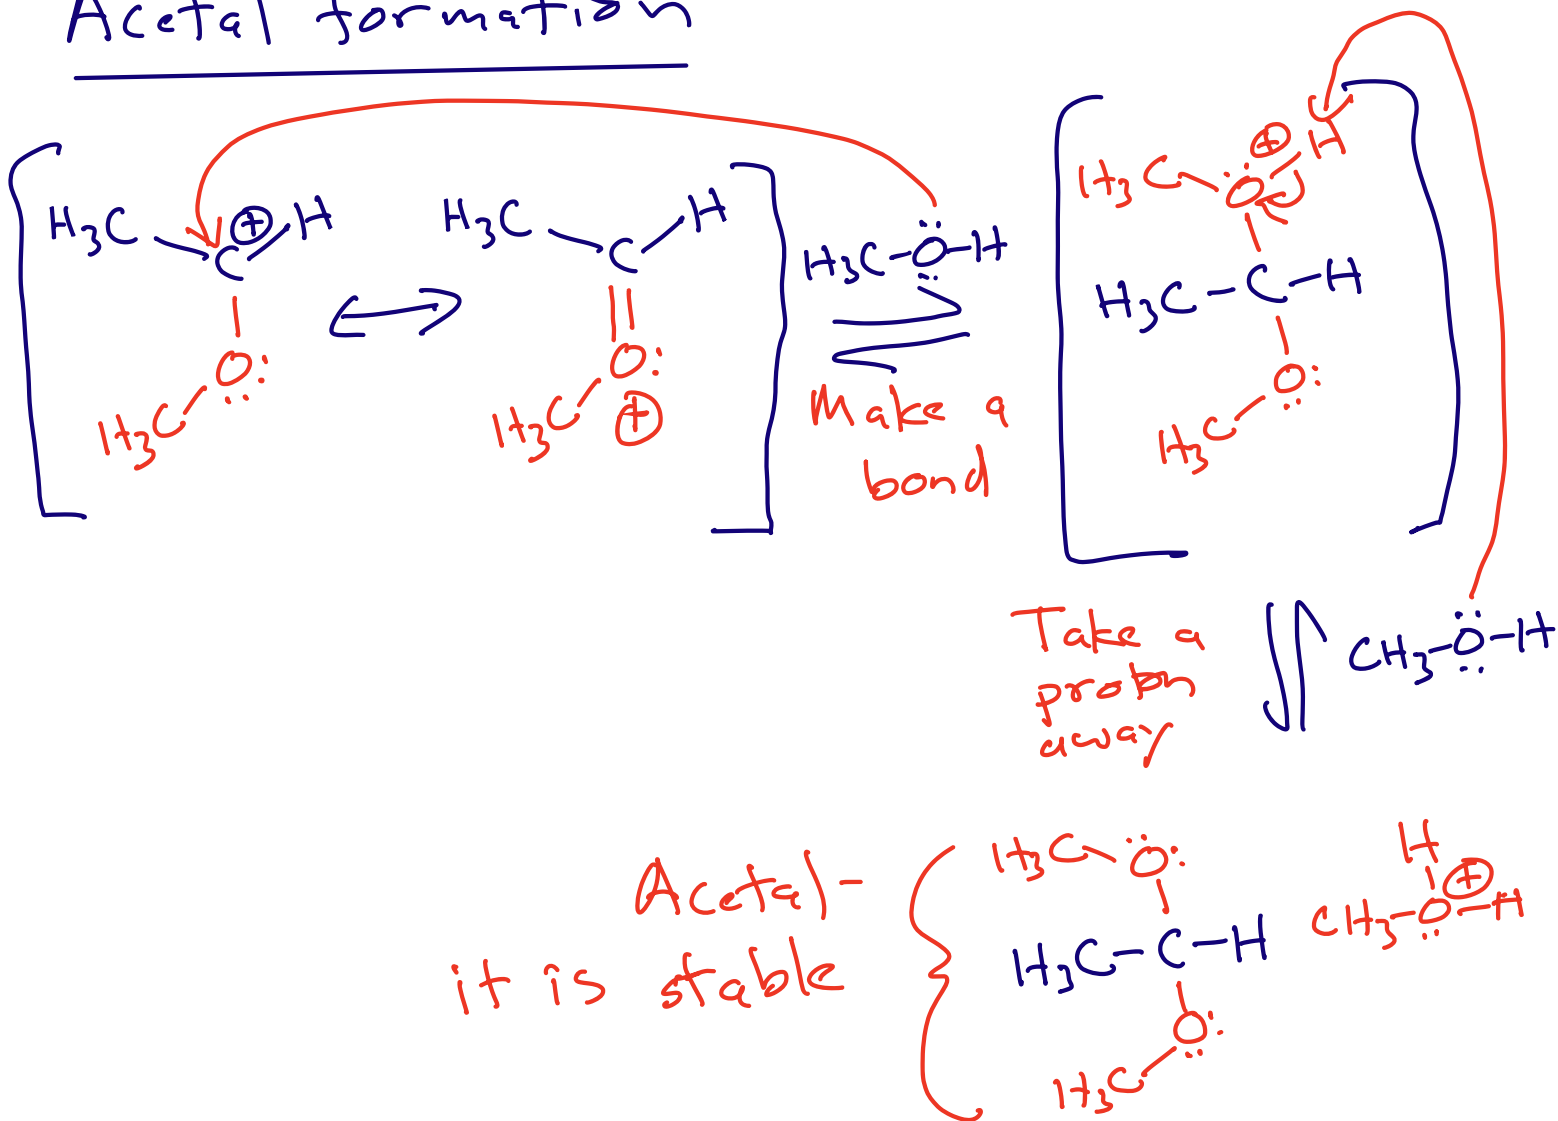 Acetal formation
H₃C C ⊕ H
O:
H₃C
H₃C C H
O:
H₃C ⊕
H₃C-O-H
Make a
bond
H₃C O ⊕ H
H₃C-C-H
O:
H₃C
Take a
proton
away
CH₃-O-H
Acetal-
it is stable
H₃C O:
H₃C-C-H
O:
H₃C
H
CH₃-O-H ⊕